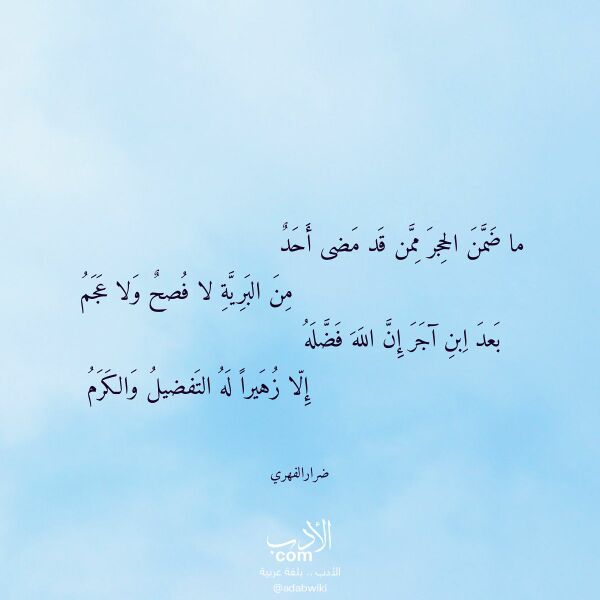 ما ضَمَّنَ الحِجرَ مِمَّن قَد مَضى أَحَدٌ
مِنَ البَرِيَّةِ لا فُصحٌ وَلا عَجَمُ
بَعدَ اِبنِ آجَرَ إِنَّ اللَهَ فَضَّلَهُ
إِلّا زُهَيراً لَهُ التَفضيلُ وَالكَرَمُ
ضرارالفهري
الأدب
.com
الأدب .. بلغة عربية
@adabwiki